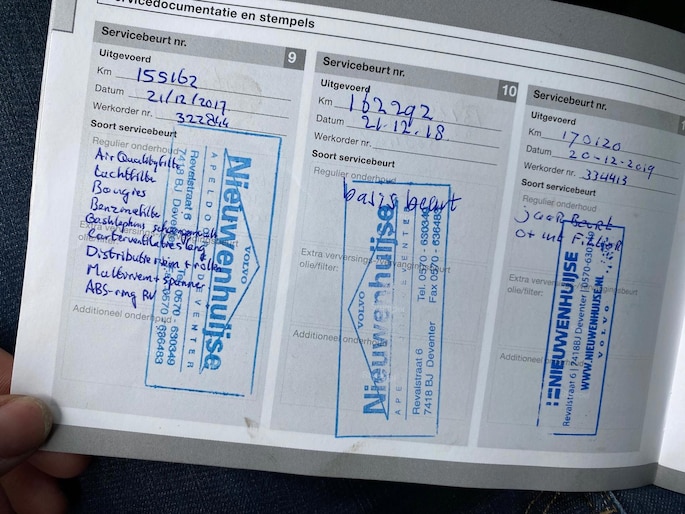 Servicedocumentatie en stempels
Servicebeurt nr. 9
Uitgevoerd
Km 155162
Datum 21/12/2017
Werkorder nr. 322844
Soort servicebeurt
Regulier onderhoud
Air Quality filter
Luchtfilter
Bougies
Benzinefilter
Carterventilatieslang
Distributieriem + rollen
Multiriem + spanner
ABS-ring RV
olie/filter:
Additioneel onderhoud
Nieuwenhuijse
VOLVO
APELDOORN DEVENTER
Revalstraat 6
7418 BJ Deventer
Tel. 0570 - 630349
Fax 0570 - 636483
Servicebeurt nr. 10
Uitgevoerd
Km 162292
Datum 21.12.18
Werkorder nr.
Soort servicebeurt
Regulier onderhoud
basis beurt
Extra verversings-/vervangingsbeurt
olie/filter:
Additioneel onderhoud
Nieuwenhuijse
VOLVO
Revalstraat 6
7418 BJ Deventer
Tel. 0570 - 630349
Fax 0570 - 636483
Servicebeurt nr.
Uitgevoerd
Km 170120
Datum 20-12-2019
Werkorder nr. 334413
Soort servicebeurt
Regulier onderhoud
jaar Beurt
Extra verversings-/vervangingsbeurt
olie/filter:
Additioneel
NIEUWENHUIJSE
Revalstraat 6 | 7418BJ Deventer | 0570-630349
WWW.NIEUWENHUIJSE.NL
VOLVO